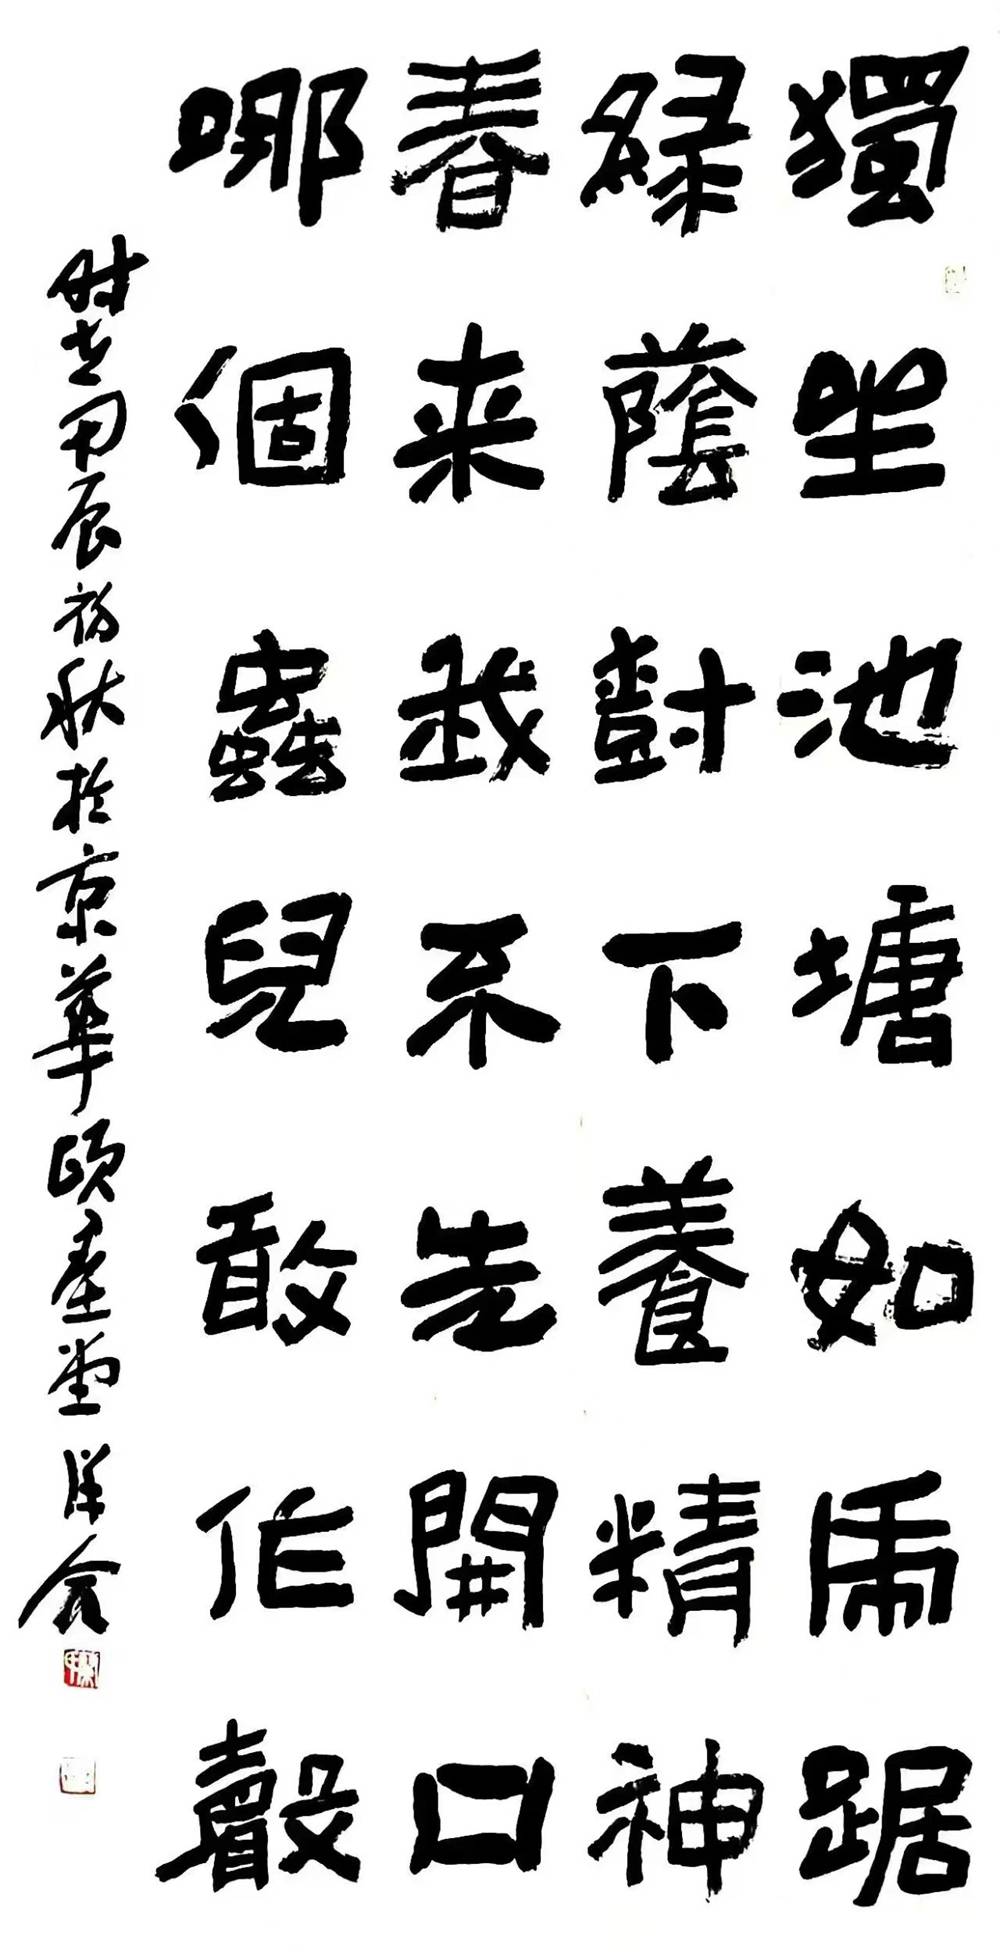 獨坐池塘如虎踞
綠蔭對下養精神
春来我不先開口
哪個蟲兒敢作聲
時在甲辰初秋於京華頤